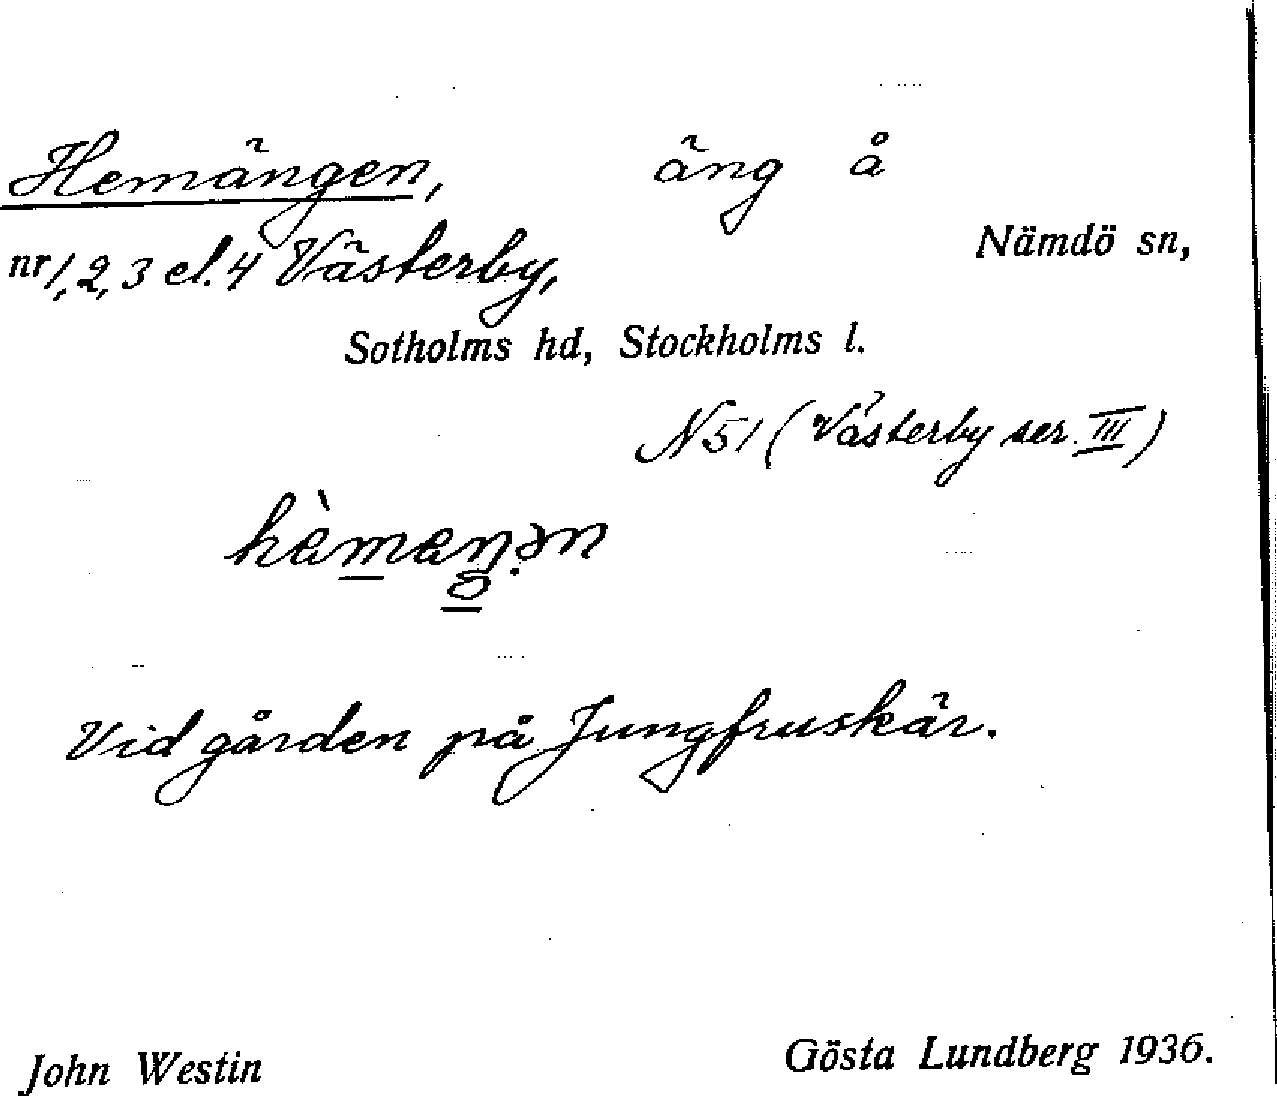 Hemängen, äng å
nr 1, 2, 3 el. 4 Västerby, Nämdö sn,
Sotholms hd, Stockholms l.
N51 (Västerby ser. III)
Vid gården på Jungfruskär.
John Westin Gösta Lundberg 1936.